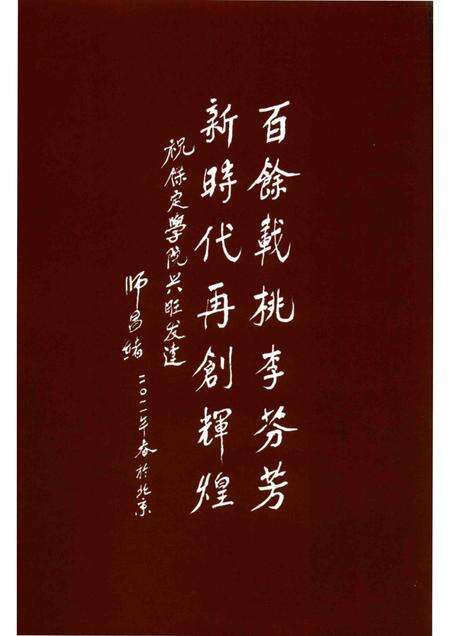 百餘載桃李芬芳
新時代再創輝煌
祝保定學院兴旺发達
师昌緒 二〇一一年春於北京